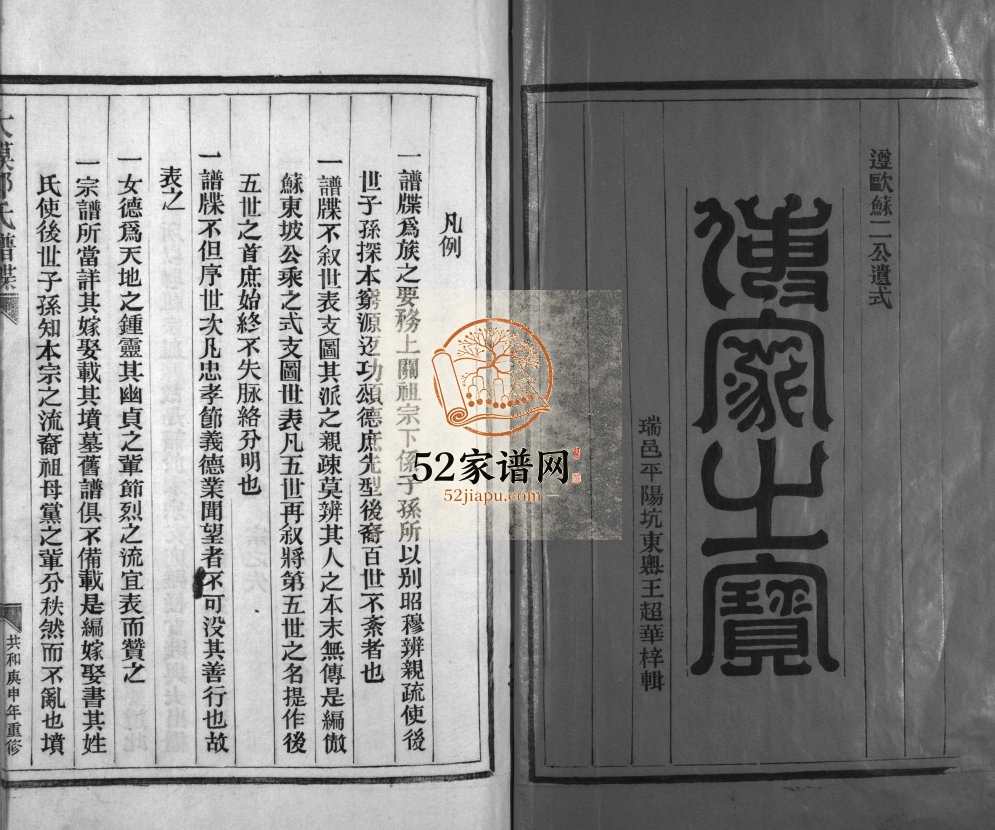 遵歐蘇二公遺式
傳家之寶
瑞邑平陽坑東粵王超華梓輯
凡例
一譜牒爲族之要務上關祖宗下係子孫所以别昭穆辨親疏使後
世子孫探本窮源廹功頌德庶先型後裔百世不紊者也
一譜牒不叙世表支圖其派之親疎莫辨其人之本末無傳是編倣
蘇東坡公乘之式支圖世表凡五世再叙將第五世之名提作後
五世之首庶始終不失脉絡分明也
一譜牒不但序世次凡忠孝節義德業聞望者不可没其善行也故
表之
一女德爲天地之鍾靈其幽貞之軰節烈之流宜表而贊之
一宗譜所當詳其嫁娶載其墳墓舊譜俱不備載是編嫁娶書其姓
氏使後世子孫知本宗之流裔祖母黨之軰分秩然而不亂也墳
氏譜牒
共和庚申年重修
52家谱网
52jiapu.com